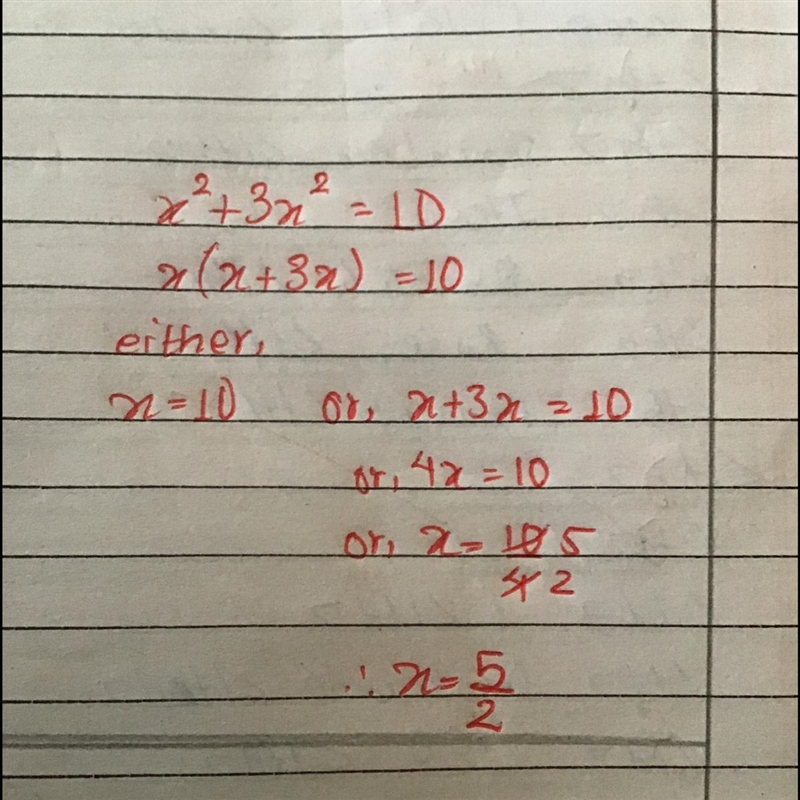 x² + 3x² = 10
x(x + 3x) = 10
either,
x = 10 or, x + 3x = 10
or, 4x = 10
or, x = 10 5
4 2
∴ x = 5
2